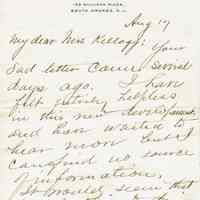 SOUTH ORANGE, N.J.
Aug 17
My dear Mrs. Kellogg: Your
sad letter came several
days ago. I have
felt entirely helpless
in this new development
and have waited to
hear more but I
can find no source
of information.
It would seem that